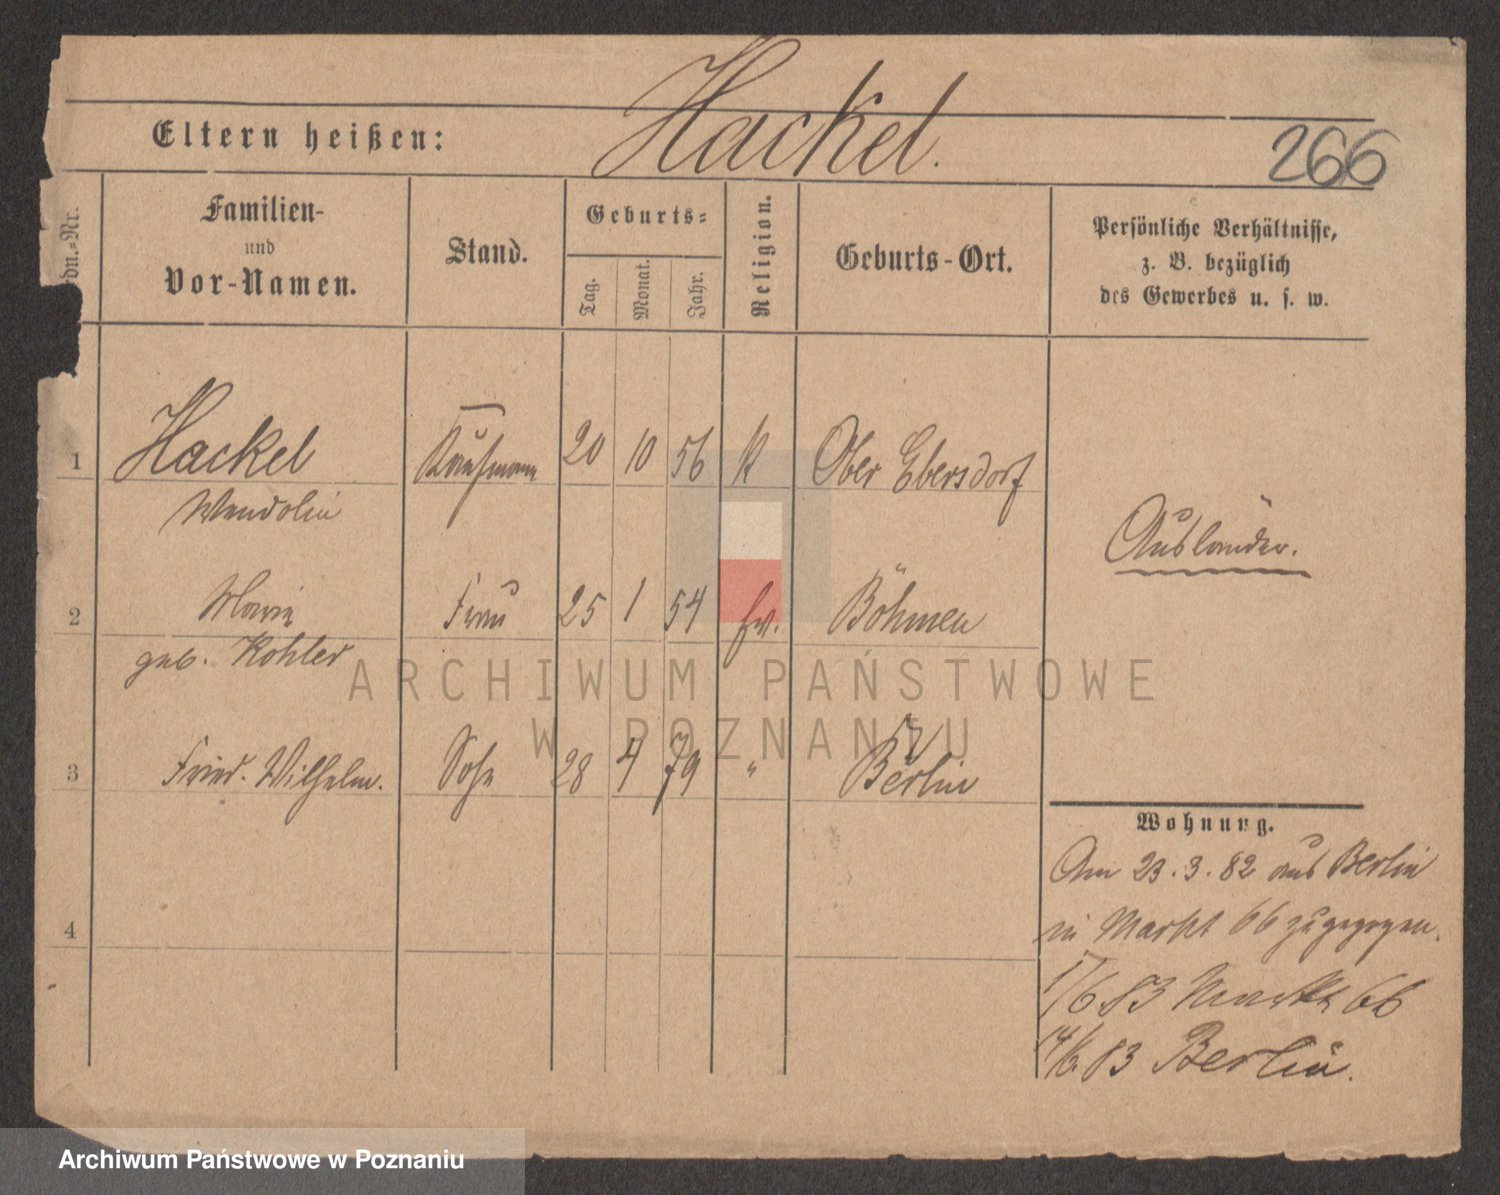 Hackel.
Eltern heißen:
266
Ordn.=Nr.
Familien-
und
Vor-Namen.
Stand.
Geburts=
Tag.
Monat.
Jahr.
Religion.
Geburts-Ort.
Persönliche Verhältnisse,
z. B. bezüglich
des Gewerbes u. s. w.
1 Hackel Kaufmann 20 10 56 K Ober Ebersdorf
Wendolin
Ausländer.
2 Marie Frau 25 1 54 Böhmen
geb. Kohler
3 Fried. Wilhelm. Sohn 28 4 79 " Berlin
4
Wohnung.
Am 23.3.82 aus Berlin
in Markt 66 zugezogen.
1/6 83 Markt 66
14/6.83 Berlin.
ARCHIWUM PAŃSTWOWE
W POZNANIU
Archiwum Państwowe w Poznaniu